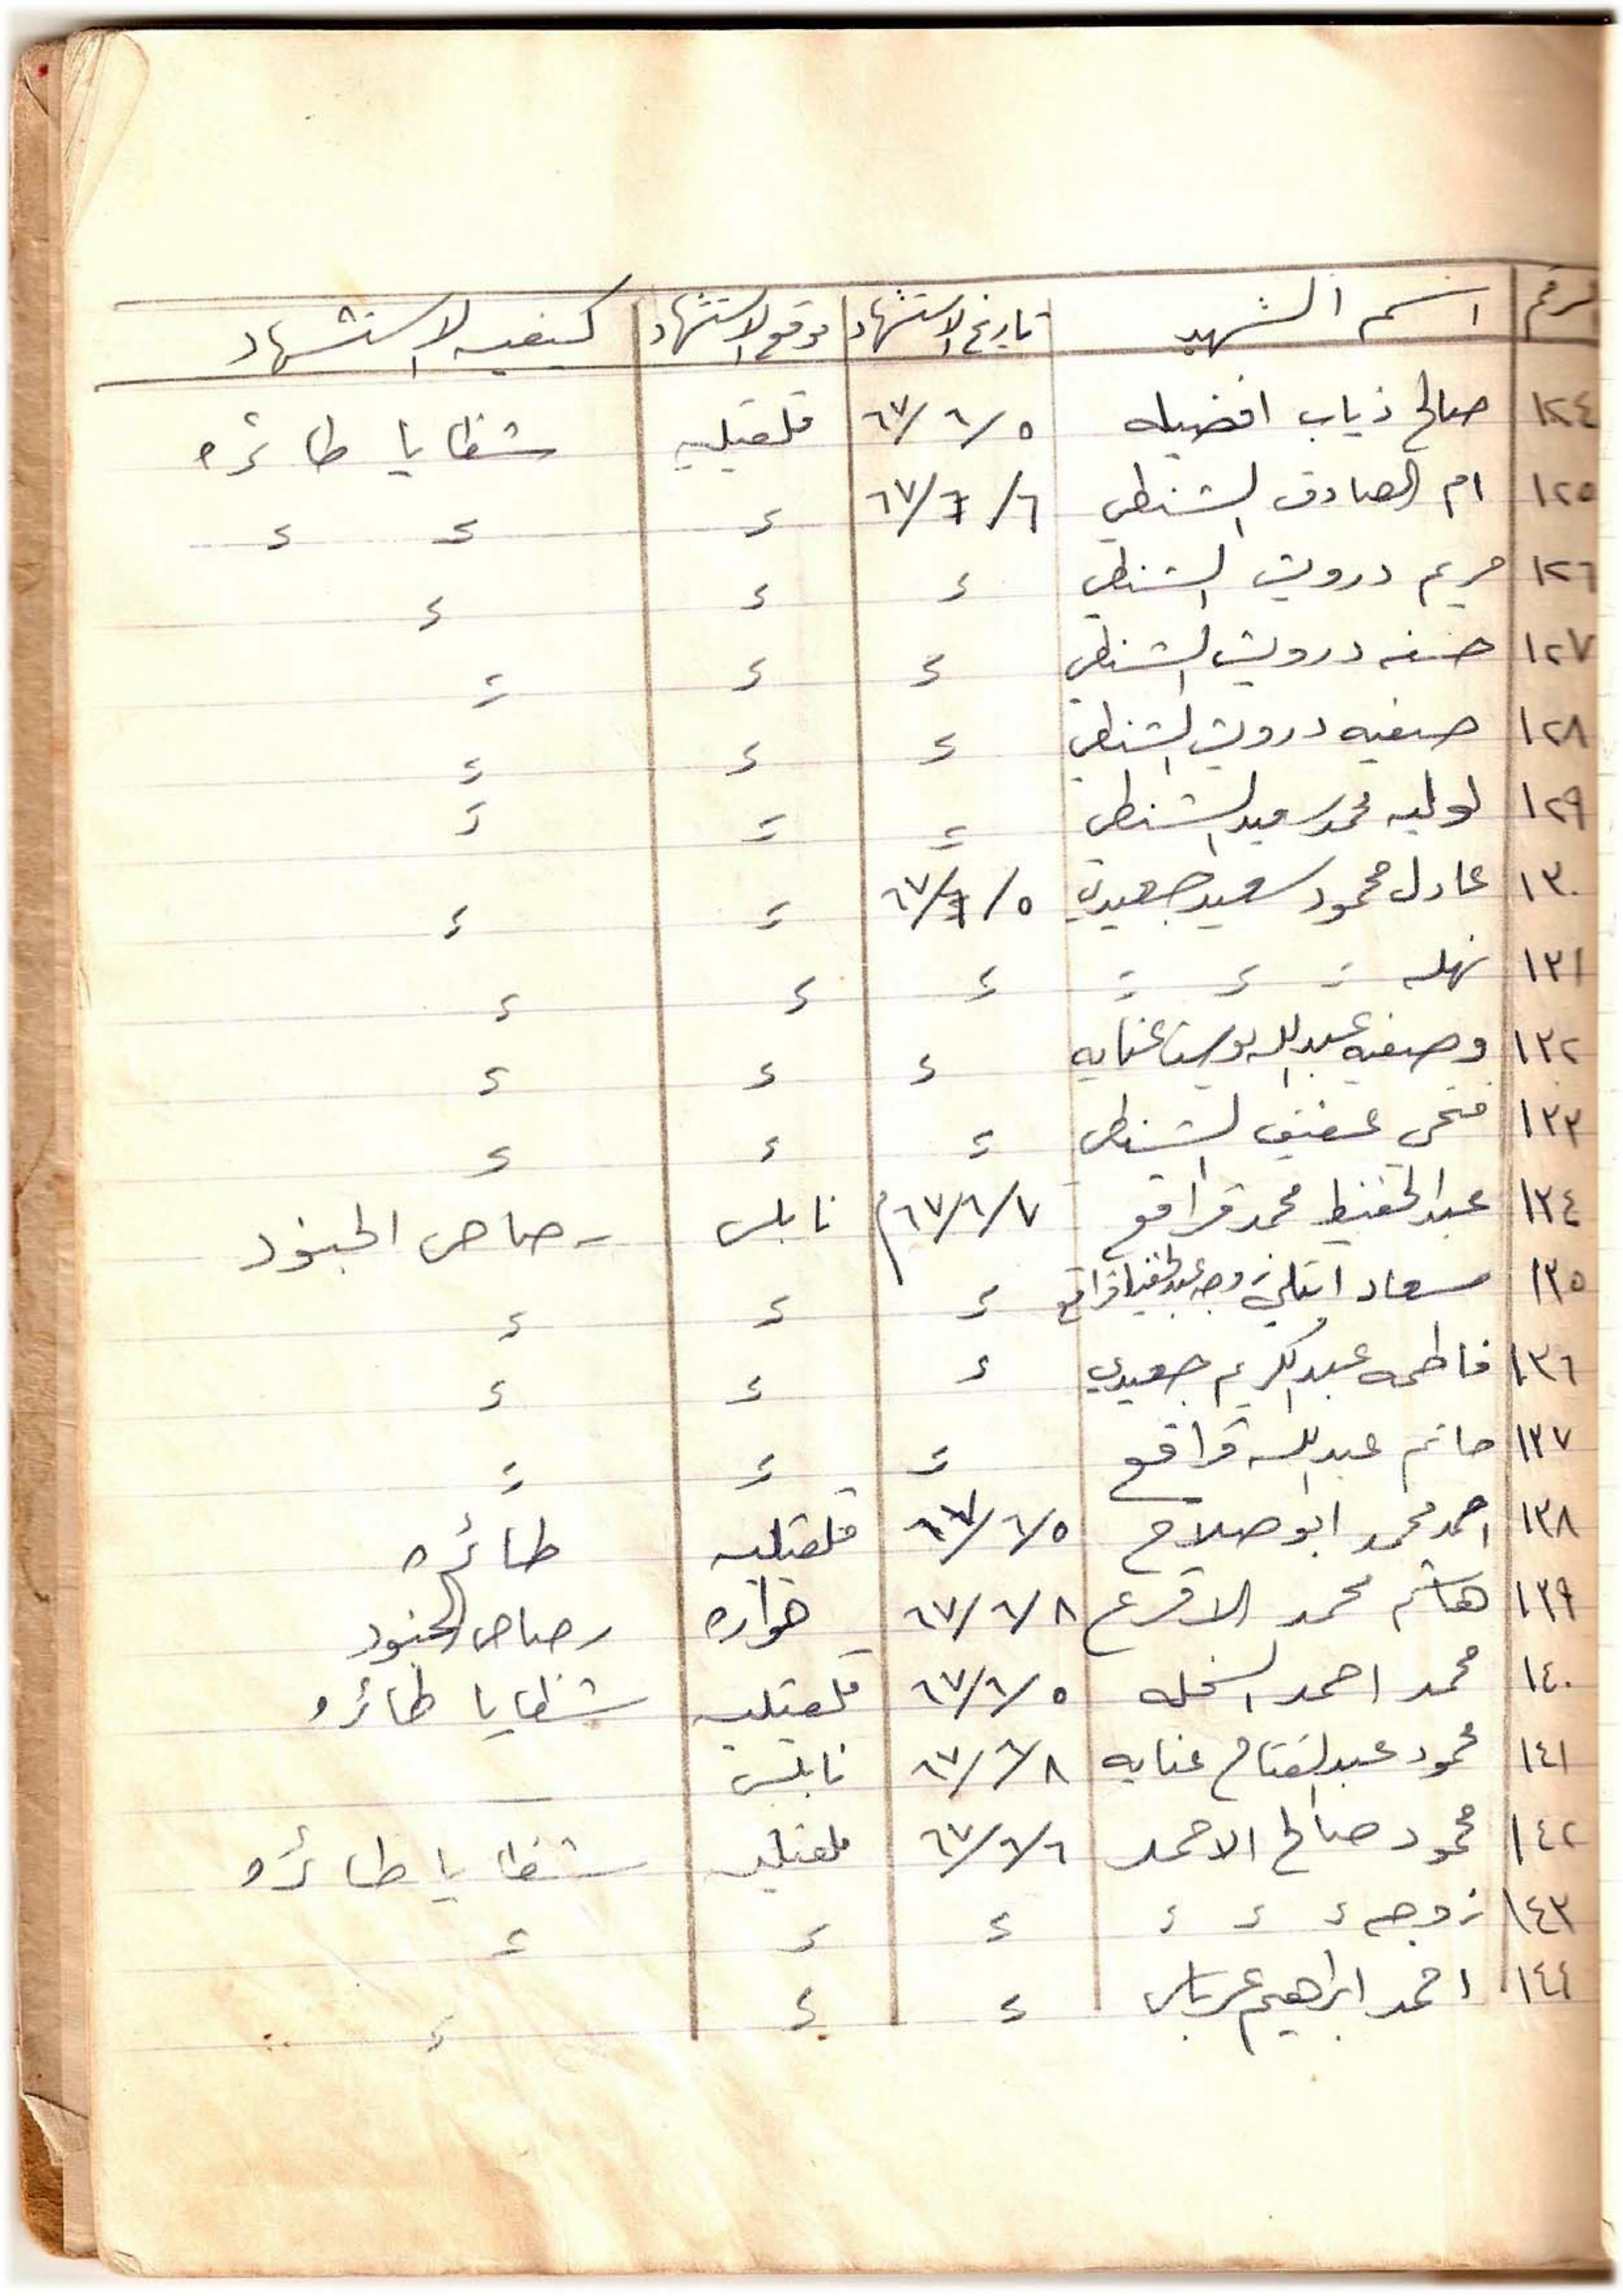 الرقم اسم الشهيد تاريخ الاستشهاد موقع الاستشهاد كيفيه الاستشهاد
١٢٤ صالح ذياب افضيله ٦٧/٦/٥ قلقيليه شظايا طائره
١٢٥ ام الصادق الشنطي ٦٧/٦/٦ ء ء ء
١٢٦ مريم درويش الشنطي ء ء ء
١٢٧ حسنه درويش الشنطي ء ء ء
١٢٨ صفيه درويش الشنطي ء ء ء
١٢٩ لوليه محمد سعيد الشنطي ء ء ء
١٣٠ عادل محمود سعيد جعيدي ٦٧/٦/٥ ء ء
١٣١ نهله ء ء ء ء ء ء
١٣٢ وصفيه عبدالله يوسف عنايه ء ء ء
١٣٣ فتحي عفيف الشنطي ء ء ء
١٣٤ عبدالحفيظ محمد قراقع ٦٧/٦/٧م نابلس رصاص الجنود
١٣٥ سعاد زوجه عبدالحفيظ قراقع ء ء ء
١٣٦ فاطمه عبدالكريم جعيدي ء ء ء
١٣٧ حاتم عبدالله قراقع ء ء ء
١٣٨ احمد محمد ابو صلاح ٦٧/٦/٥ قلقيليه طائره
١٣٩ هاشم محمد الاقرع ٦٧/٦/٨ حواره رصاص الجنود
١٤٠ محمد احمد النخله ٦٧/٦/٥ قلقيليه شظايا طائره
١٤١ محمود عبدالفتاح عنايه ٦٧/٦/٨ نابلس
١٤٢ محمود صالح الاحمد ٦٧/٦/٦ قلقيليه شظايا طائره
١٤٣ زوجه ء ء ء ء ء ء
١٤٤ احمد ابراهيم عرباس ء ء ء